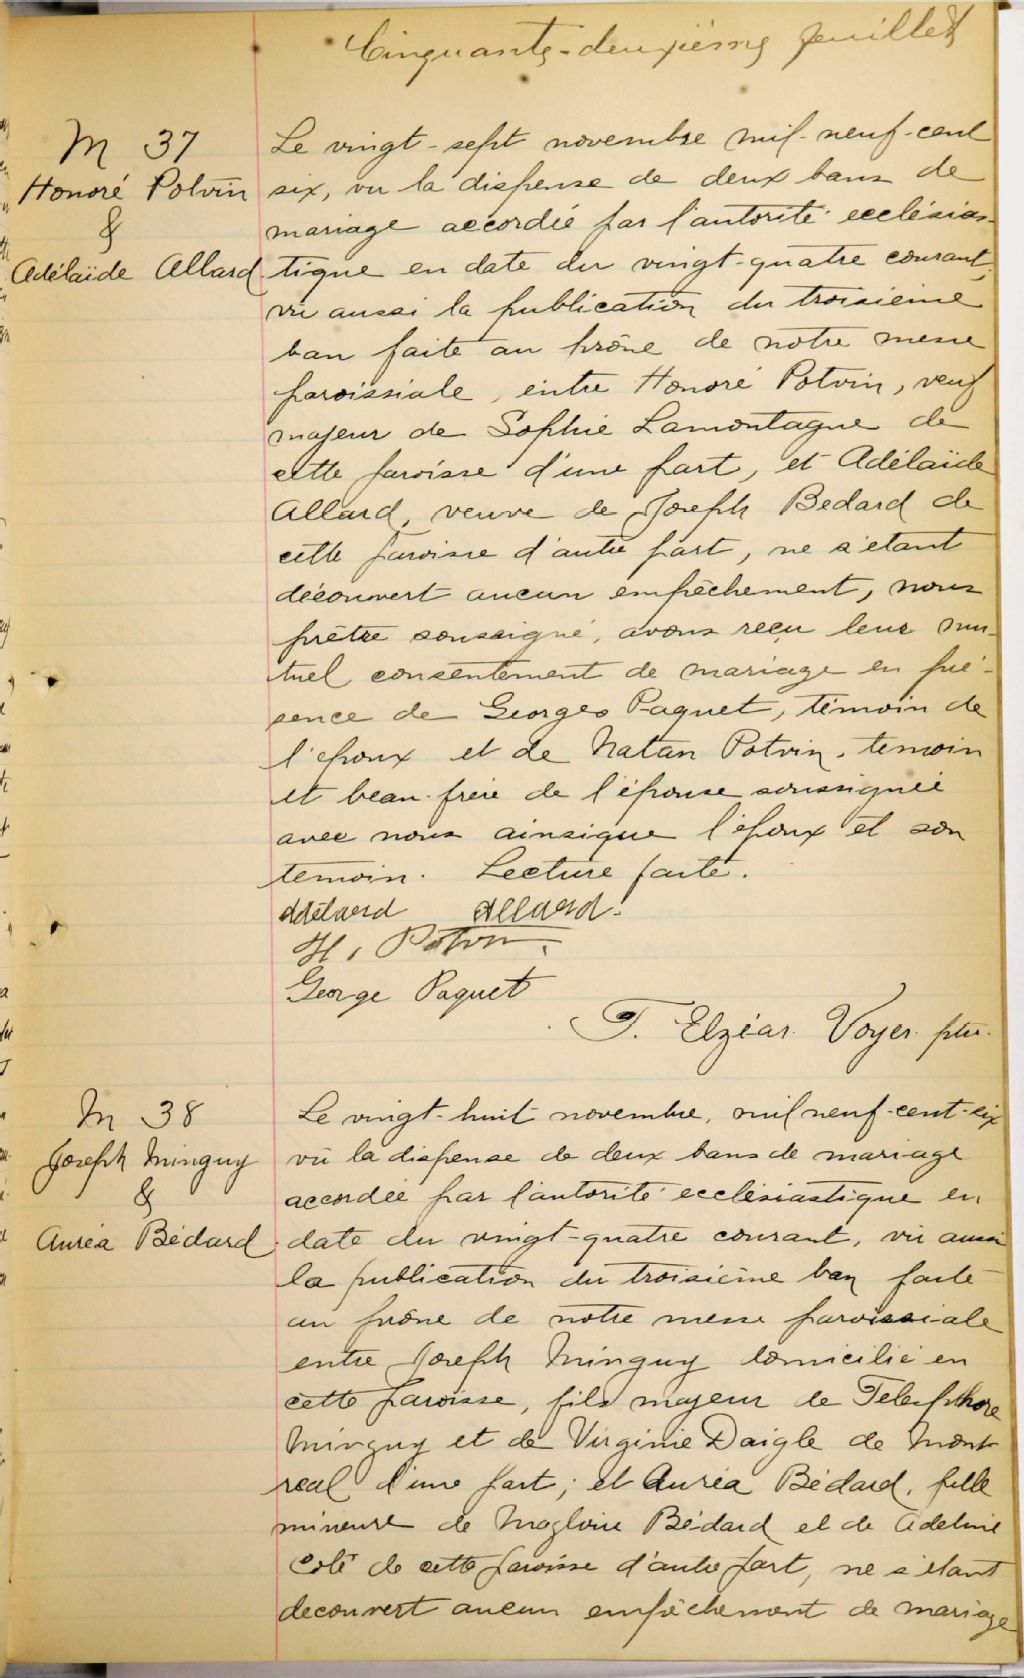 Cinquante-deuxième feuillet
M 37
Honoré Potvin
&
Adélaïde Allard
Le vingt-sept novembre mil-neuf-cent
six, vu la dispense de deux bans de
mariage accordée par l'autorité ecclésias-
tique en date du vingt-quatre courant,
vu aussi la publication du troisième
ban faite au prône de notre messe
paroissiale, entre Honoré Potvin, veuf
majeur de Sophie Lamontagne de
cette paroisse d'une part, et Adélaïde
Allard, veuve de Joseph Bedard de
cette paroisse d'autre part, ne s'étant
découvert aucun empêchement, nous
prêtre soussigné, avons reçu leur mu-
tuel consentement de mariage en pré-
sence de Georges Paquet, témoin de
l'époux et de Natan Potvin, temoin
et beau-frère de l'épouse soussignée
avec nous ainsique l'époux et son
temoin. Lecture faite.
Adélaerd Allaerd.
H. Potvin
George Paquet
T. Elzéar Voyer ptre.
M 38
Joseph Minguy
&
Auréa Bédard
Le vingt-huit novembre, mil neuf-cent-six
vû la dispense de deux bans de mariage
accordée par l'autorité ecclésiastique en
date du vingt-quatre courant, vu aussi
la publication du troisième ban faite
au prône de notre messe paroissiale
entre Joseph Minguy domicilié en
cette paroisse, fils majeur de Telesphore
Minguy et de Virginie Daigle de Mont-
real d'une part; et Auréa Bédard, fille
mineure de Magloire Bédard et de Adeline
Coté de cette paroisse d'autre part, ne s'étant
decouvert aucun empêchement de mariage